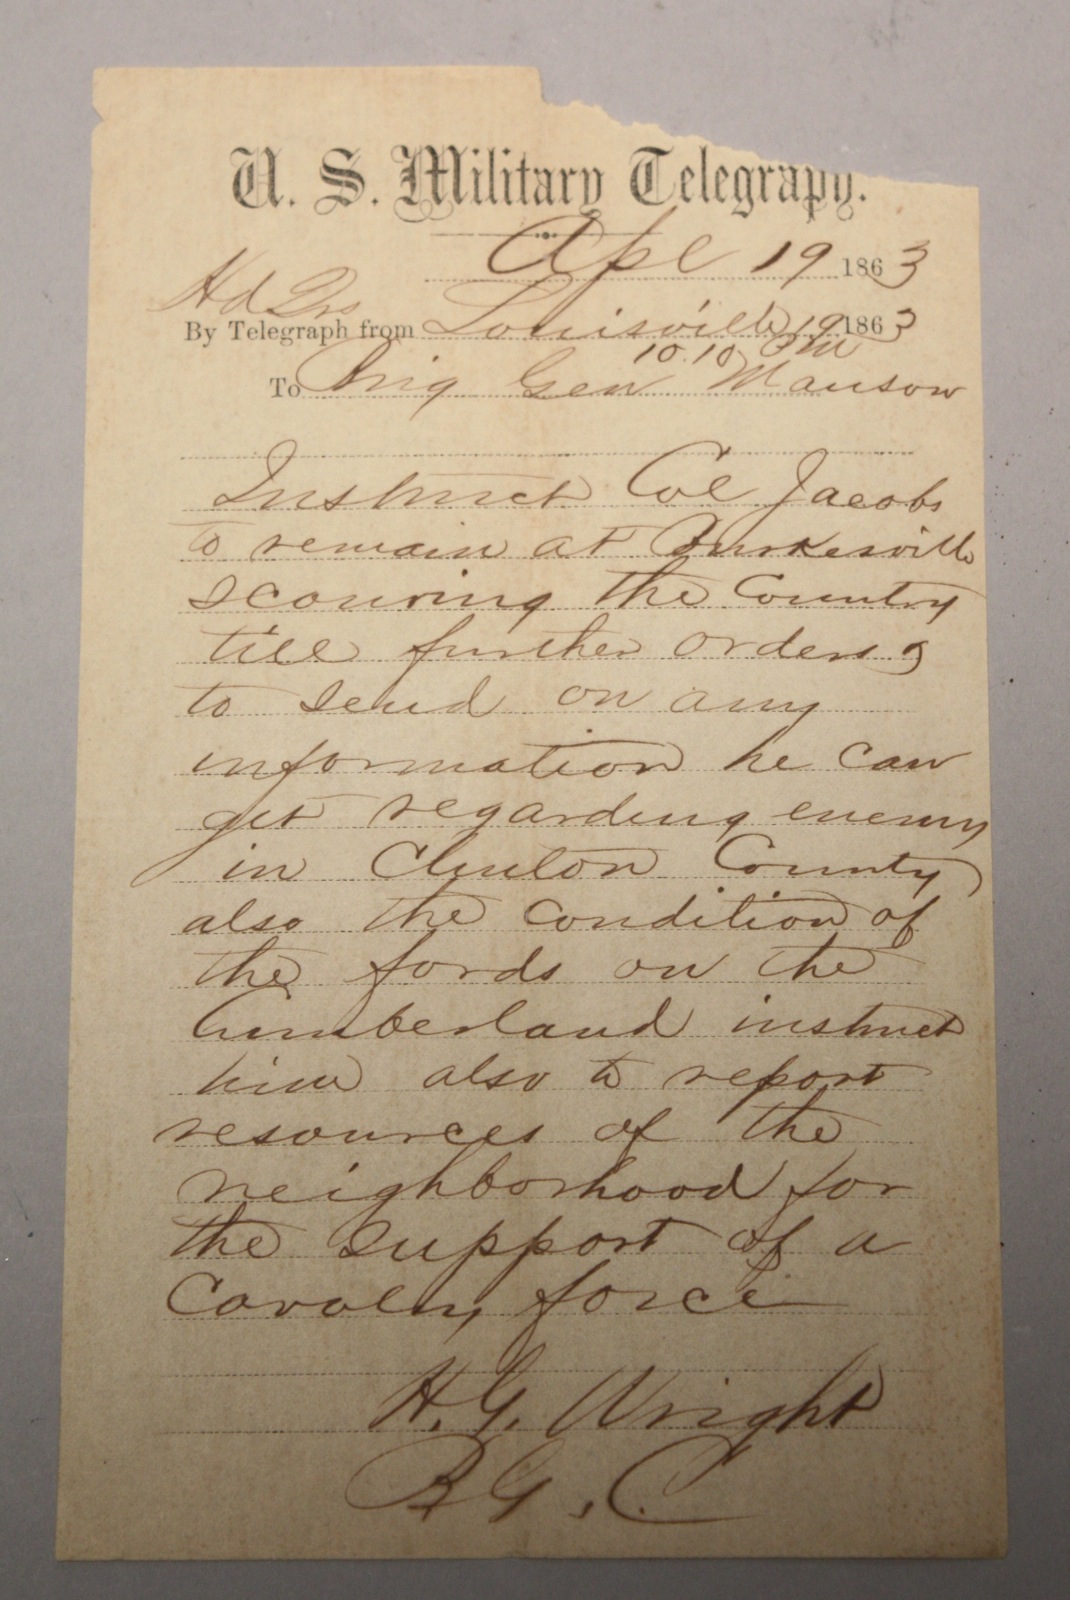 U. S. Military Telegraph.
Apl 19 1863
Hd Qrs
By Telegraph from Louisville 19 1863
10.10 PM
To Brig Gen Manson
Instruct Col Jacobs
to remain at Burkesville
scouring the Country
till further orders &
to send on any
information he can
get regarding enemy
in Clinton County
also the condition of
the fords on the
Cumberland instruct
him also to report
resources of the
neighborhood for
the support of a
Cavalry force
H. G. Wright
B G. C